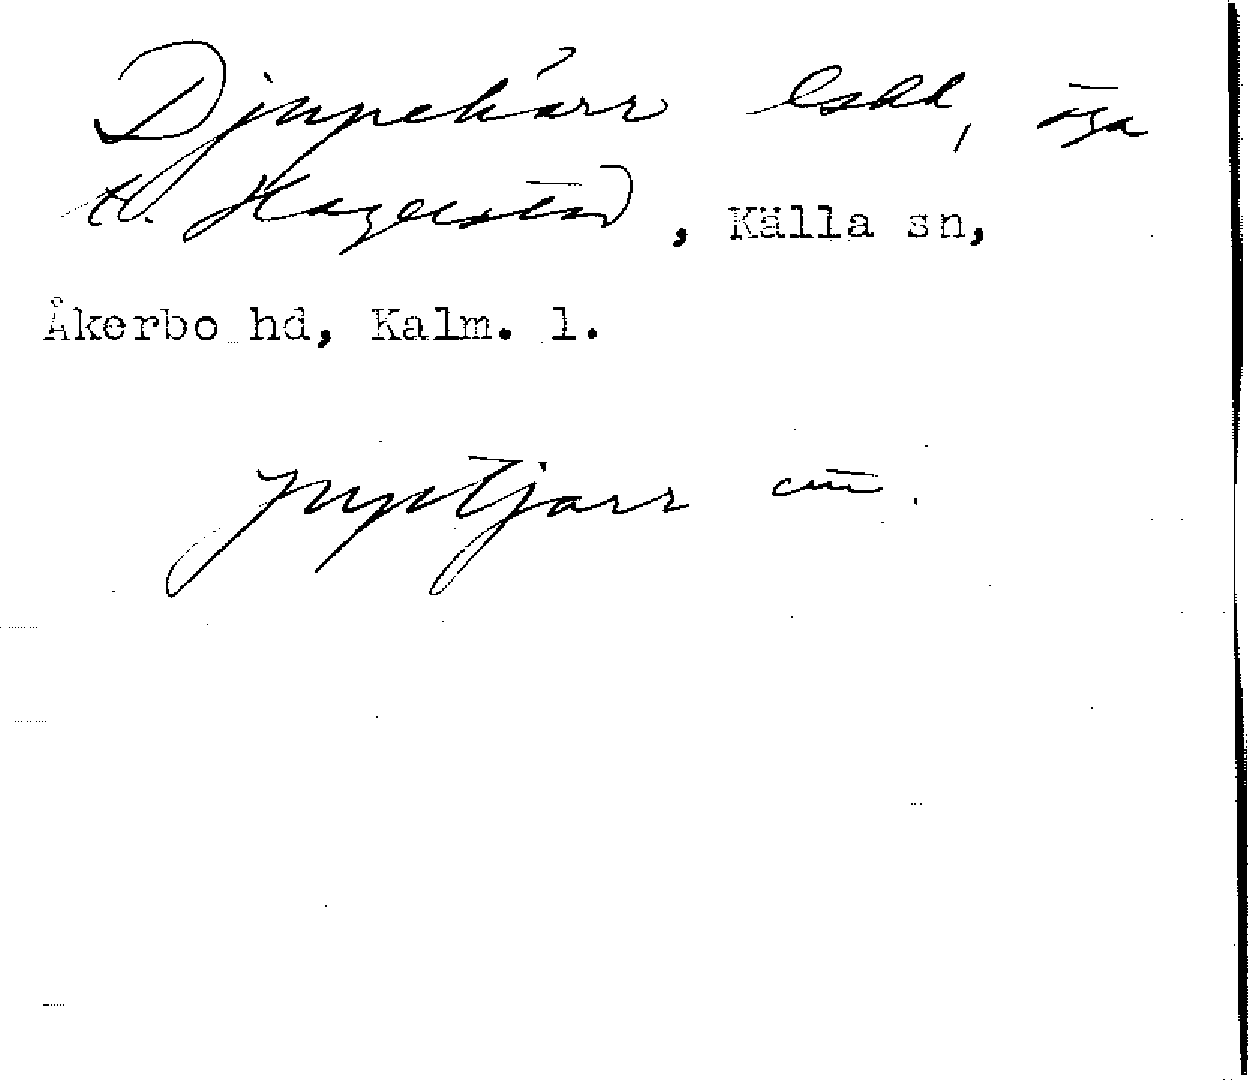 Djupekärr lskl, äga
t. Hagelstad, Källa sn,
Åkerbo hd, Kalm. l.
juptjarr